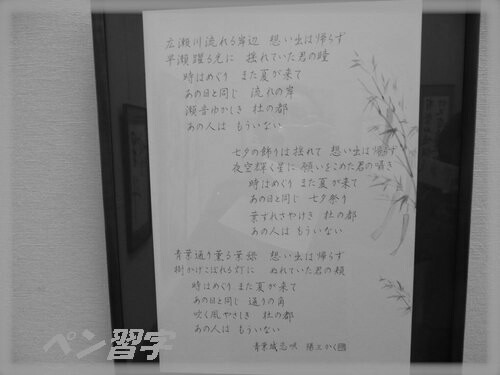 広瀬川流れる岸辺 想い出は帰らず
早瀬躍る光に 揺れていた君の瞳
時はめぐり また夏が来て
あの日と同じ 流れの岸
瀬音ゆかしき 杜の都
あの人は もういない
七夕の飾りは揺れて 想い出は帰らず
夜空輝く星に 願いをこめた君の囁き
時はめぐり また夏が来て
あの日と同じ 七夕祭り
葉ずれさやけき 杜の都
あの人は もういない
青葉通り薫る葉緑 想い出は帰らず
樹かげこぼれる灯に ぬれていた君の頬
時はめぐり また夏が来て
あの日と同じ 通りの角
吹く風やさしき 杜の都
あの人は もういない
青葉城恋唄 かく
ペン習字